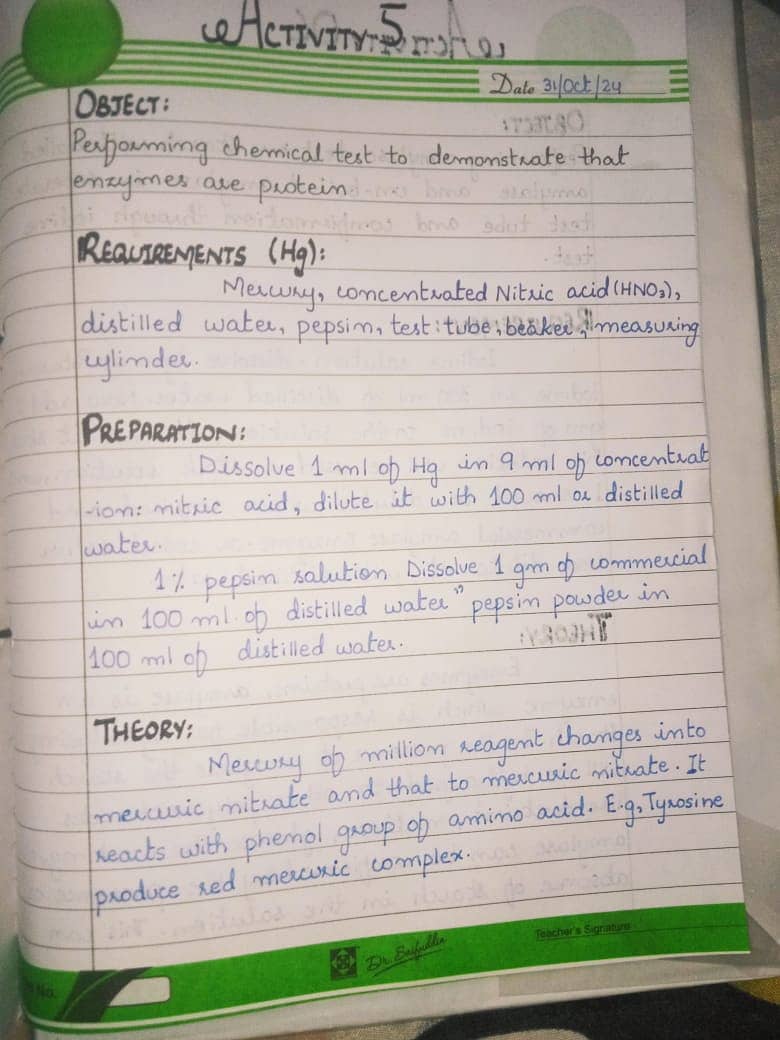 ACTIVITY-5
Date 31/Oct/24
OBJECT:
Performing chemical test to demonstrate that
enzymes are protein
REQUIREMENTS (Hg):
Mercury, concentrated Nitric acid (HNO3),
distilled water, pepsin, test : tube, beaker, measuring
cylinder.
PREPARATION:
Dissolve 1 ml of Hg in 9 ml of concentrat
-ion: nitric acid, dilute it with 100 ml or distilled
water.
1% pepsin salution Dissolve 1 gm of commercial
in 100 ml. of distilled water" pepsin powder in
100 ml of distilled water.
THEORY:
Mercury of million reagent changes into
mercuric nitrate and that to mercuric nitrate. It
reacts with phenol group of amino acid. E.g, Tyrosine
produce red mercuric complex.
Teacher's Signature
Dr. Saifuddin
No.